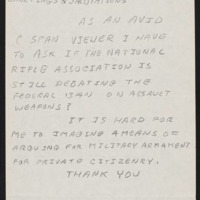 & SALUTATIONS
AS AN AVID
C SPAN VIEWER I HAVE
TO ASK IF THE NATIONAL
RIFLE ASSOCIATION IS
STILL DEBATING THE
FEDERAL BAN ON ASSAULT
WEAPONS?
IT IS HARD FOR
ME TO IMAGINE A MEANS OF
ARGUING FOR MILITARY ARMAMENT
FOR PRIVATE CITIZENRY.
THANK YOU